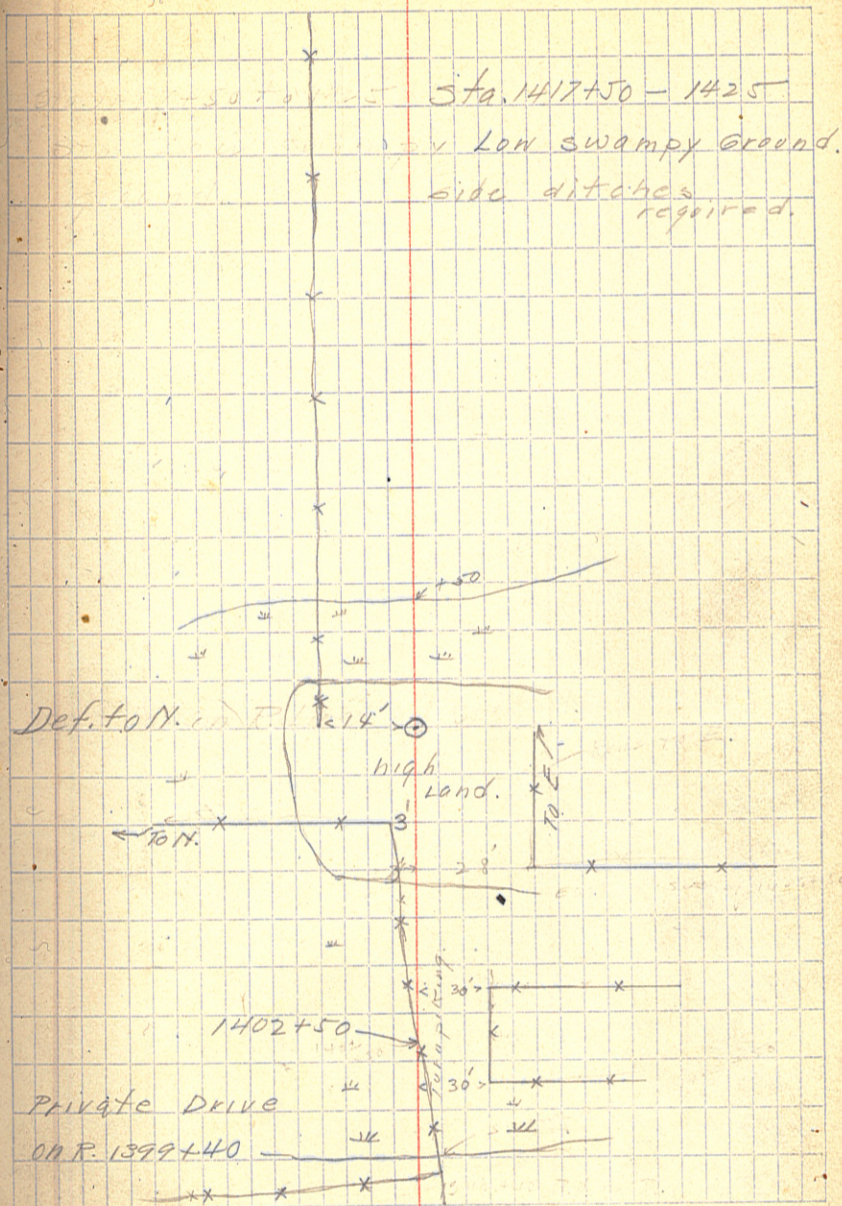 Sta. 1417+50 - 1425
Low swampy Ground.
side ditches
required.
+50
Def. to N.
14'
high
Land.
To E
3'
To N.
28'
30'
Turnpiking.
1402+50
30'
Private Drive
on R. 1399+40